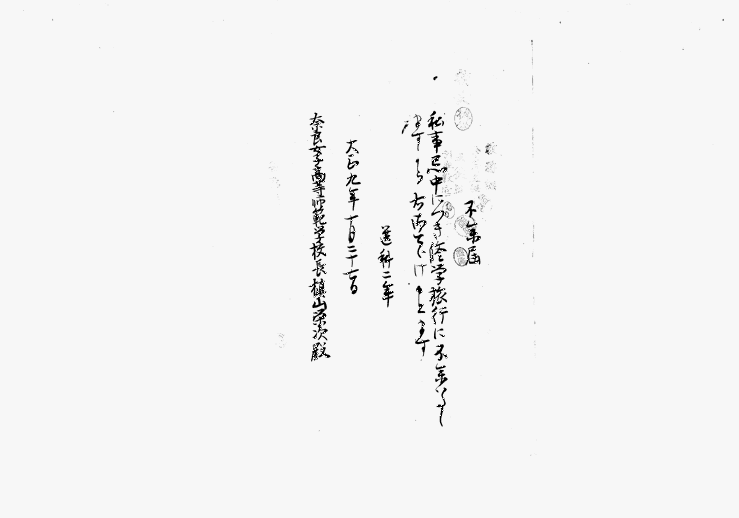 不参届
私事忌中につき修学旅行に不参いたし
ますから右御とどけ申上ます
選科二年
大正九年十月二十七日
奈良女子高等師範学校長槙山栄次殿